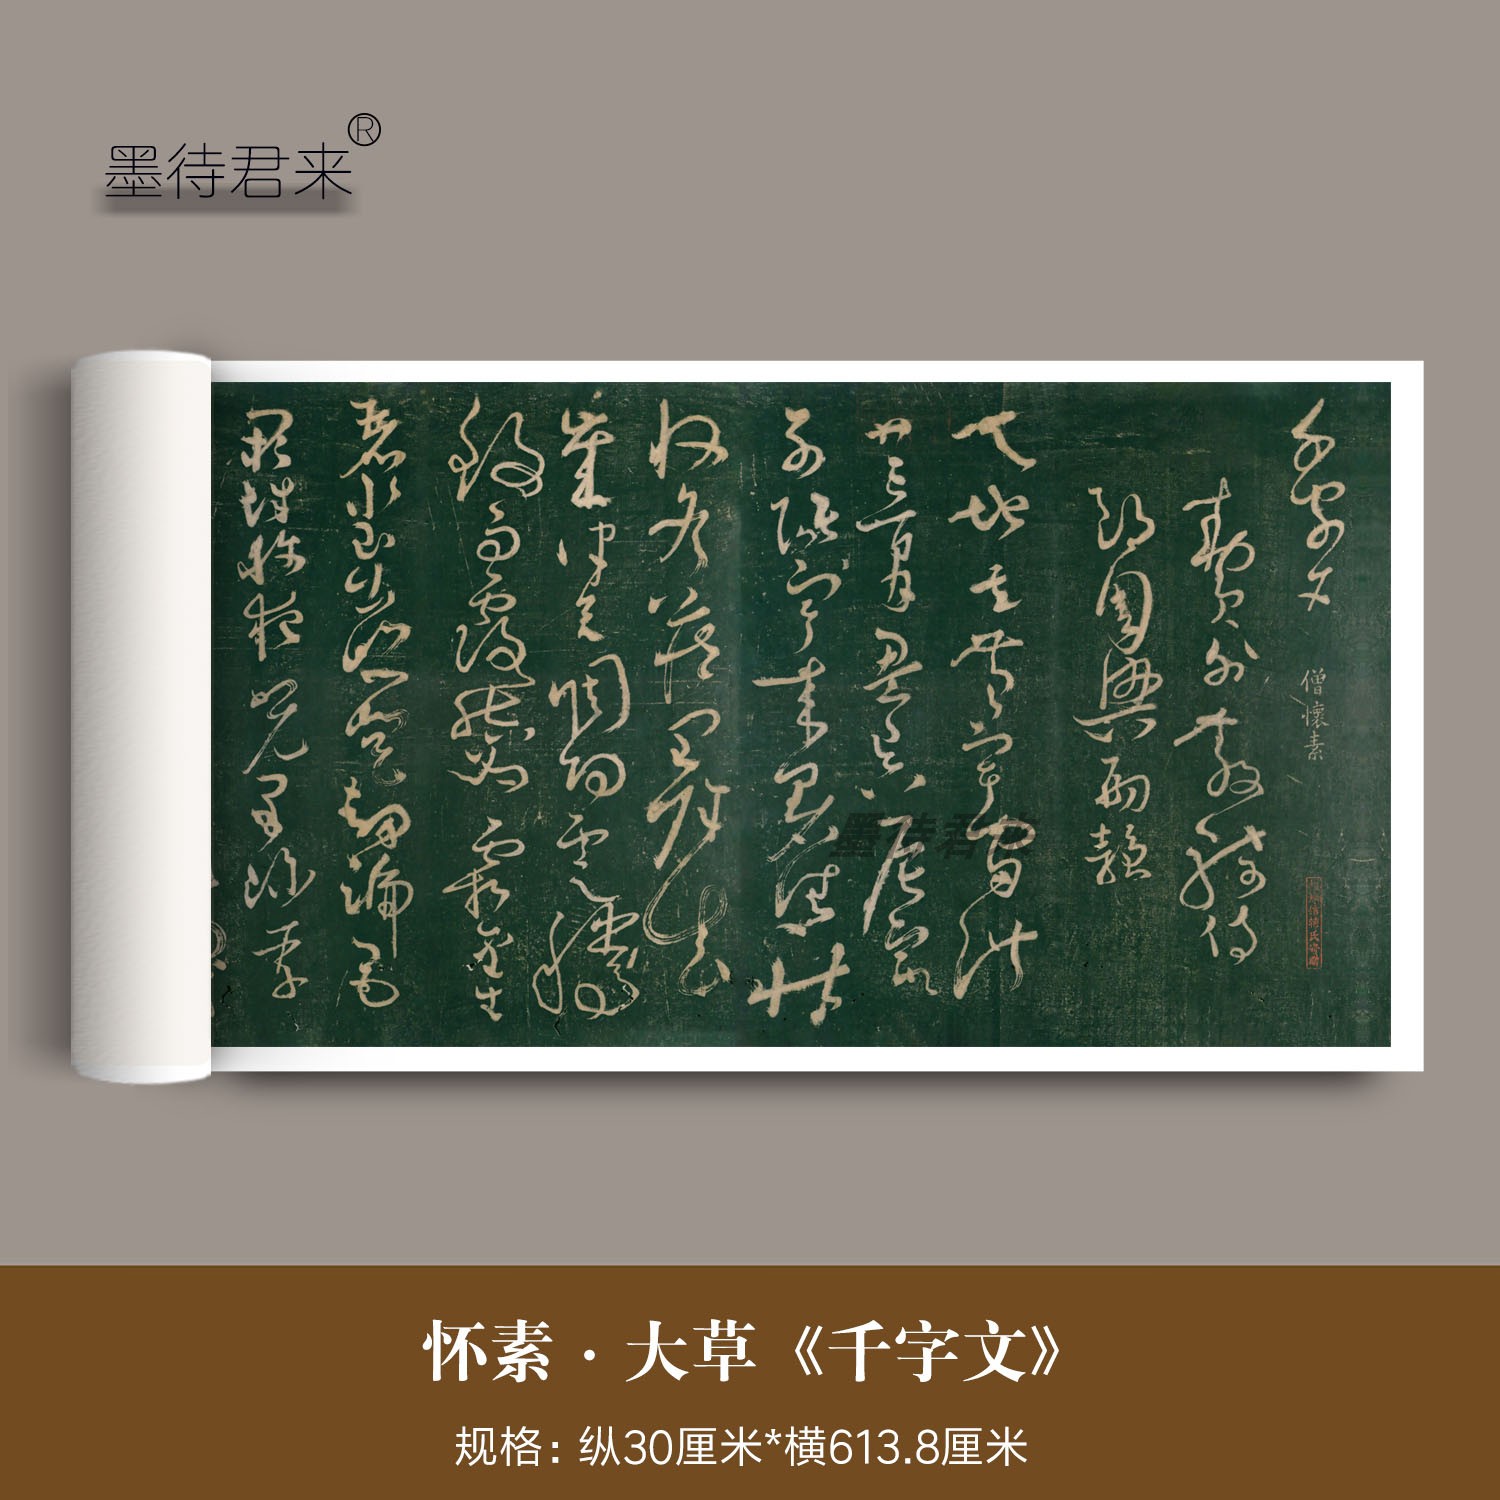 墨待君来®
千字文
僧懷素
勑員外散騎侍
郎周興嗣韻
天地玄黃宇宙洪
荒日月盈昃辰宿
列張寒來暑往秋
收冬藏閏餘成
歲律呂調陽雲騰
致雨露結為霜金生
麗水玉出崑崗劍號巨
闕珠稱夜光果珍李
墨待君来
怀素·大草《千字文》
规格：纵30厘米*横613.8厘米